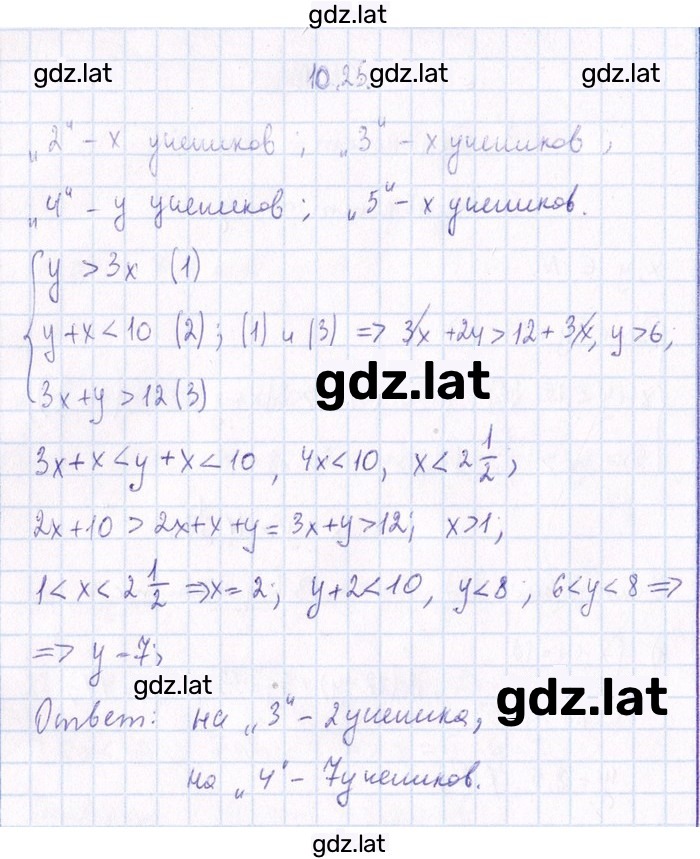 gdz.lat
gdz.lat 10.25. gdz.lat gdz.lat
„2“ - x учеников ; „3“ - x учеников ;
„4“ - y учеников ; „5“ - x учеников.
{ y > 3x (1)
y + x < 10 (2) ; (1) и (3) => 3x + 2y > 12 + 3x, y > 6;
3x + y > 12 (3)
gdz.lat
3x + x < y + x < 10 , 4x < 10, x < 2 1/2 ;
2x + 10 > 2x + x + y = 3x + y > 12; x > 1;
1 < x < 2 1/2 => x = 2; y + 2 < 10, y < 8 ; 6 < y < 8 =>
=> y - 7;
gdz.lat gdz.lat
Ответ: на „3“ - 2 ученика,
на „4“ - 7 учеников.
gdz.lat